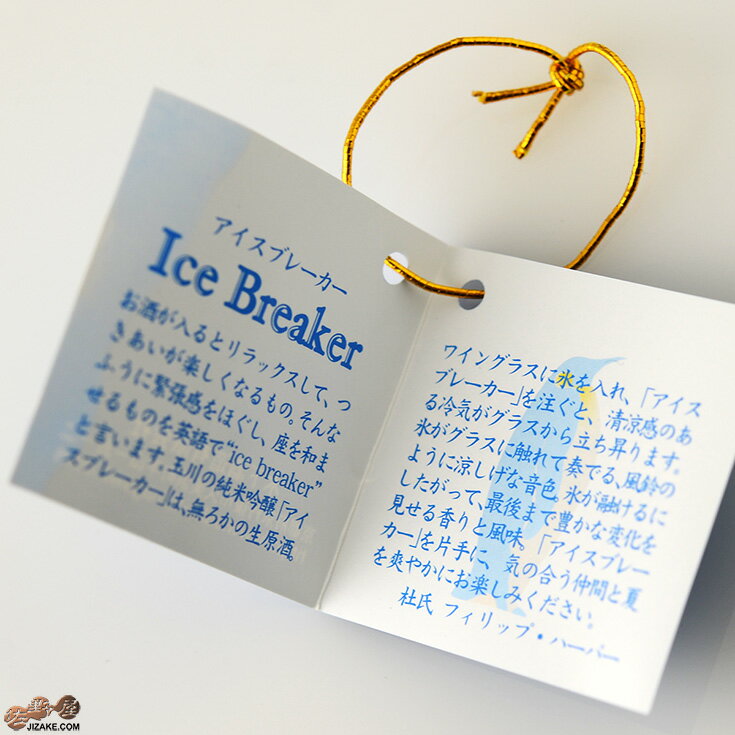 アイスブレーカー
Ice Breaker
お酒が入るとリラックスして、つ
きあいが楽しくなるもの。そんな
ふうに緊張感をほぐし、座を和ま
せるものを英語で“ice breaker”
と言います。玉川の純米吟醸「アイ
スブレーカー」は、無ろかの生原酒。
ワイングラスに氷を入れ、「アイス
ブレーカー」を注ぐと、清涼感のあ
る冷気がグラスから立ち昇ります。
氷がグラスに触れて奏でる、風鈴の
ように涼しげな音色。氷が融けるに
したがって、最後まで豊かな変化を
見せる香りと風味。「アイスブレー
カー」を片手に、気の合う仲間と夏
を爽やかにお楽しみください。
杜氏 フィリップ・ハーパー
JIZAKE.COM